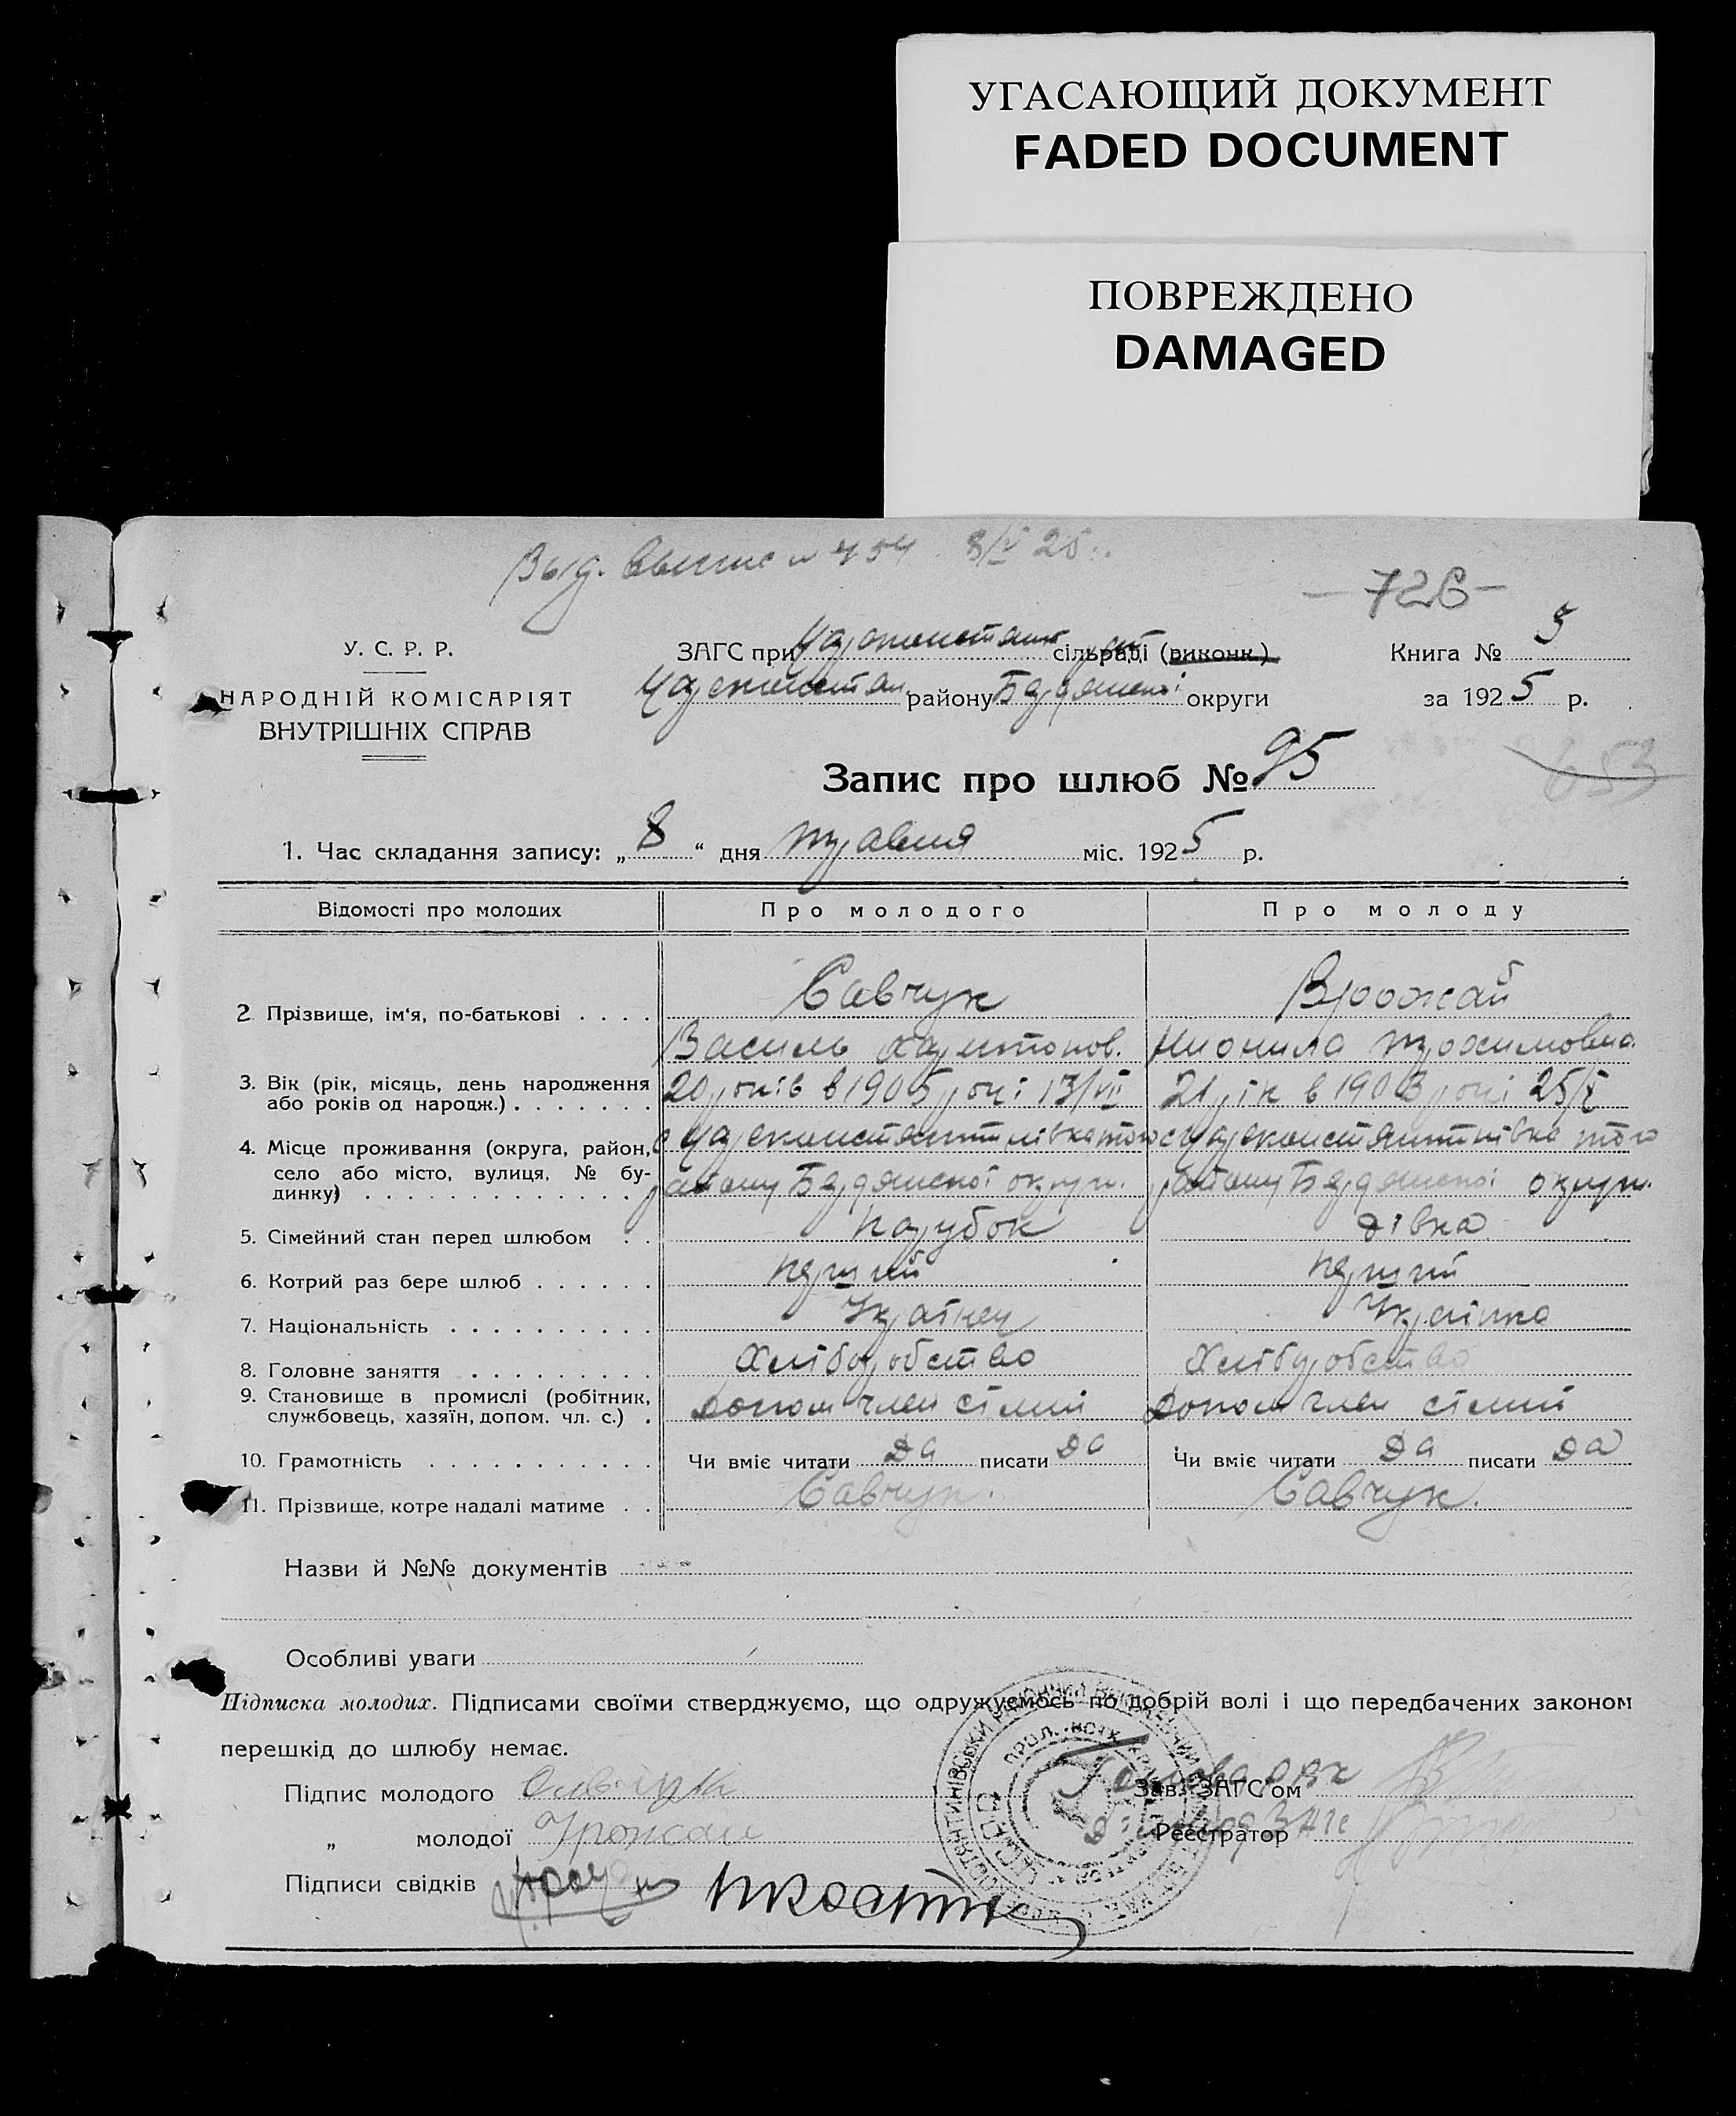 УГАСАЮЩИЙ ДОКУМЕНТ
FADED DOCUMENT
ПОВРЕЖДЕНО
DAMAGED
Выд. выпис № 754 8/V 25
—726—
У. С. Р. Р.
НАРОДНІЙ КОМІСАРІЯТ
ВНУТРІШНІХ СПРАВ
ЗАГС при Цареконстант сільраді (виконк.)
Цареконстан району Бердянської округи
Книга № 5
за 1925 р.
653
Запис про шлюб № 95
1. Час складання запису: „8“ дня травня міс. 1925 р.
Відомості про молодих Про молодого Про молоду
2 Прізвище, ім'я, по-батькові . . . . Савчук Врожай
Василь Харитонов. Мироновна
3. Вік (рік, місяць, день народження 20 років в 1905 році 13/VII 21 рік в 1903 році 25/X
або років од народж.) . . . . . . .
4. Місце проживання (округа, район, с Цареконстянтинівка того с Цареконстянтинівка того
село або місто, вулиця, № бу- району Бердянської округи. району Бердянської округи.
динку) . . . . . . . . . . . . .
5. Сімейний стан перед шлюбом . . парубок дівка
6. Котрий раз бере шлюб . . . . . . перший перший
7. Національність . . . . . . . . . . Українец Українка
8. Головне заняття . . . . . . . . . Хліборобство Хліборобство
9. Становище в промислі (робітник, допом член сімии допом член сімии
службовець, хазяїн, допом. чл. с.) .
10. Грамотність . . . . . . . . . . . Чи вміє читати да писати да Чи вміє читати да писати да
11. Прізвище, котре надалі матиме . . Савчук. Савчук.
Назви й №№ документів
Особливі уваги
Підписка молодих. Підписами своїми стверджуємо, що одружуємось по добрій волі і що передбачених законом
перешкід до шлюбу немає.
Підпис молодого Савчук Зав. ЗАГС'ом
„ молодої Урожай Реєстратор
Підписи свідків